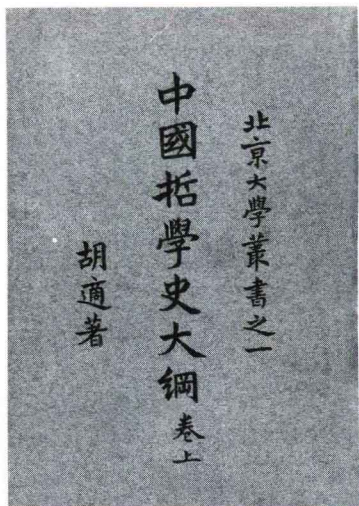 北京大學叢書之一
中國哲學史大綱 卷上
胡適著